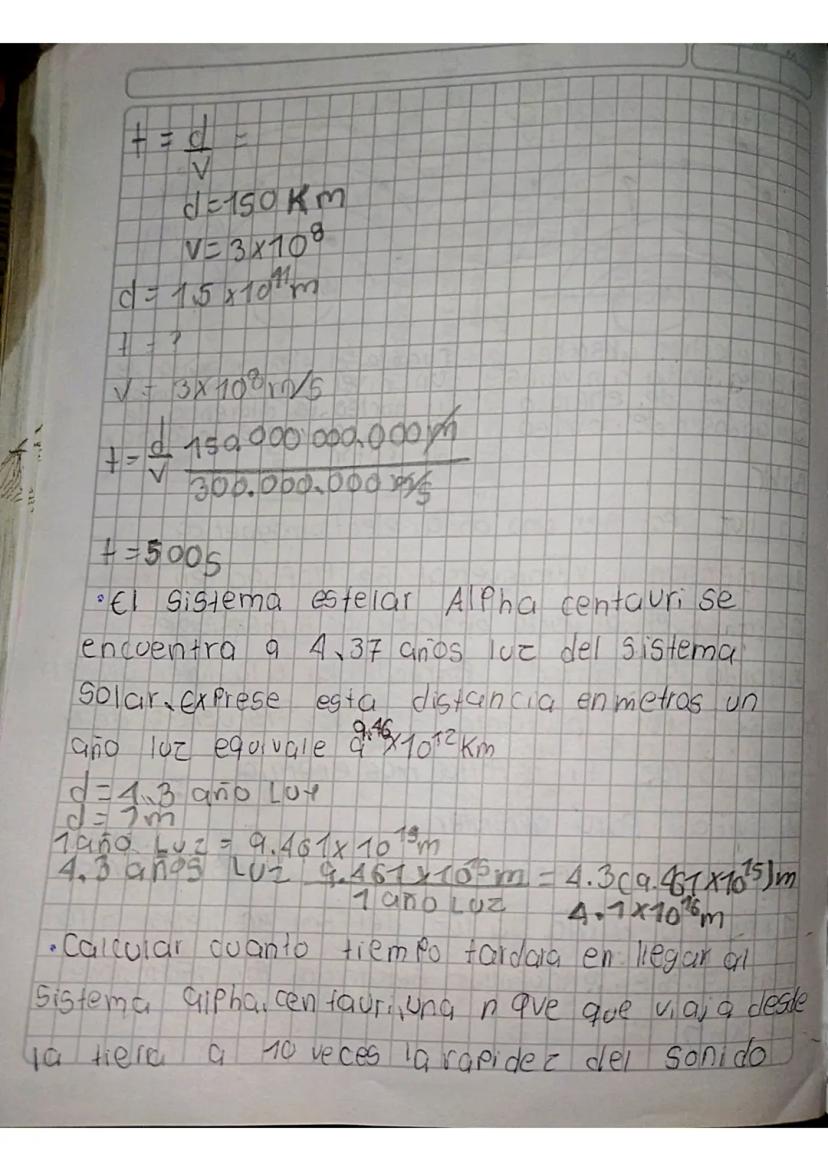 t = d/v =
d=150 Km
v=3x10⁸
d= 1.5 x10¹¹m
t = ?
v = 3x10⁸ m/s
t= d/v 150.000.000.000 m / 300.000.000 m/s
t=500s
•El sistema estelar Alpha centauri se
encuentra a 4.37 años luz del sistema
solar. exprese esta distancia en metros un
año luz equivale a 9.46x10¹² Km
d=4.3 año Luz
d= ?m
1 año Luz = 9.461x10¹⁵m
4.3 años Luz 9.461x10¹⁵m / 1 año Luz = 4.3(9.461x10¹⁵)m
4.1x10¹⁶m
•Calcular cuanto tiempo tardara en llegar al
sistema alpha.centauri, una n que que viaja desde
la tiera a 10 veces la rapidez del sonido